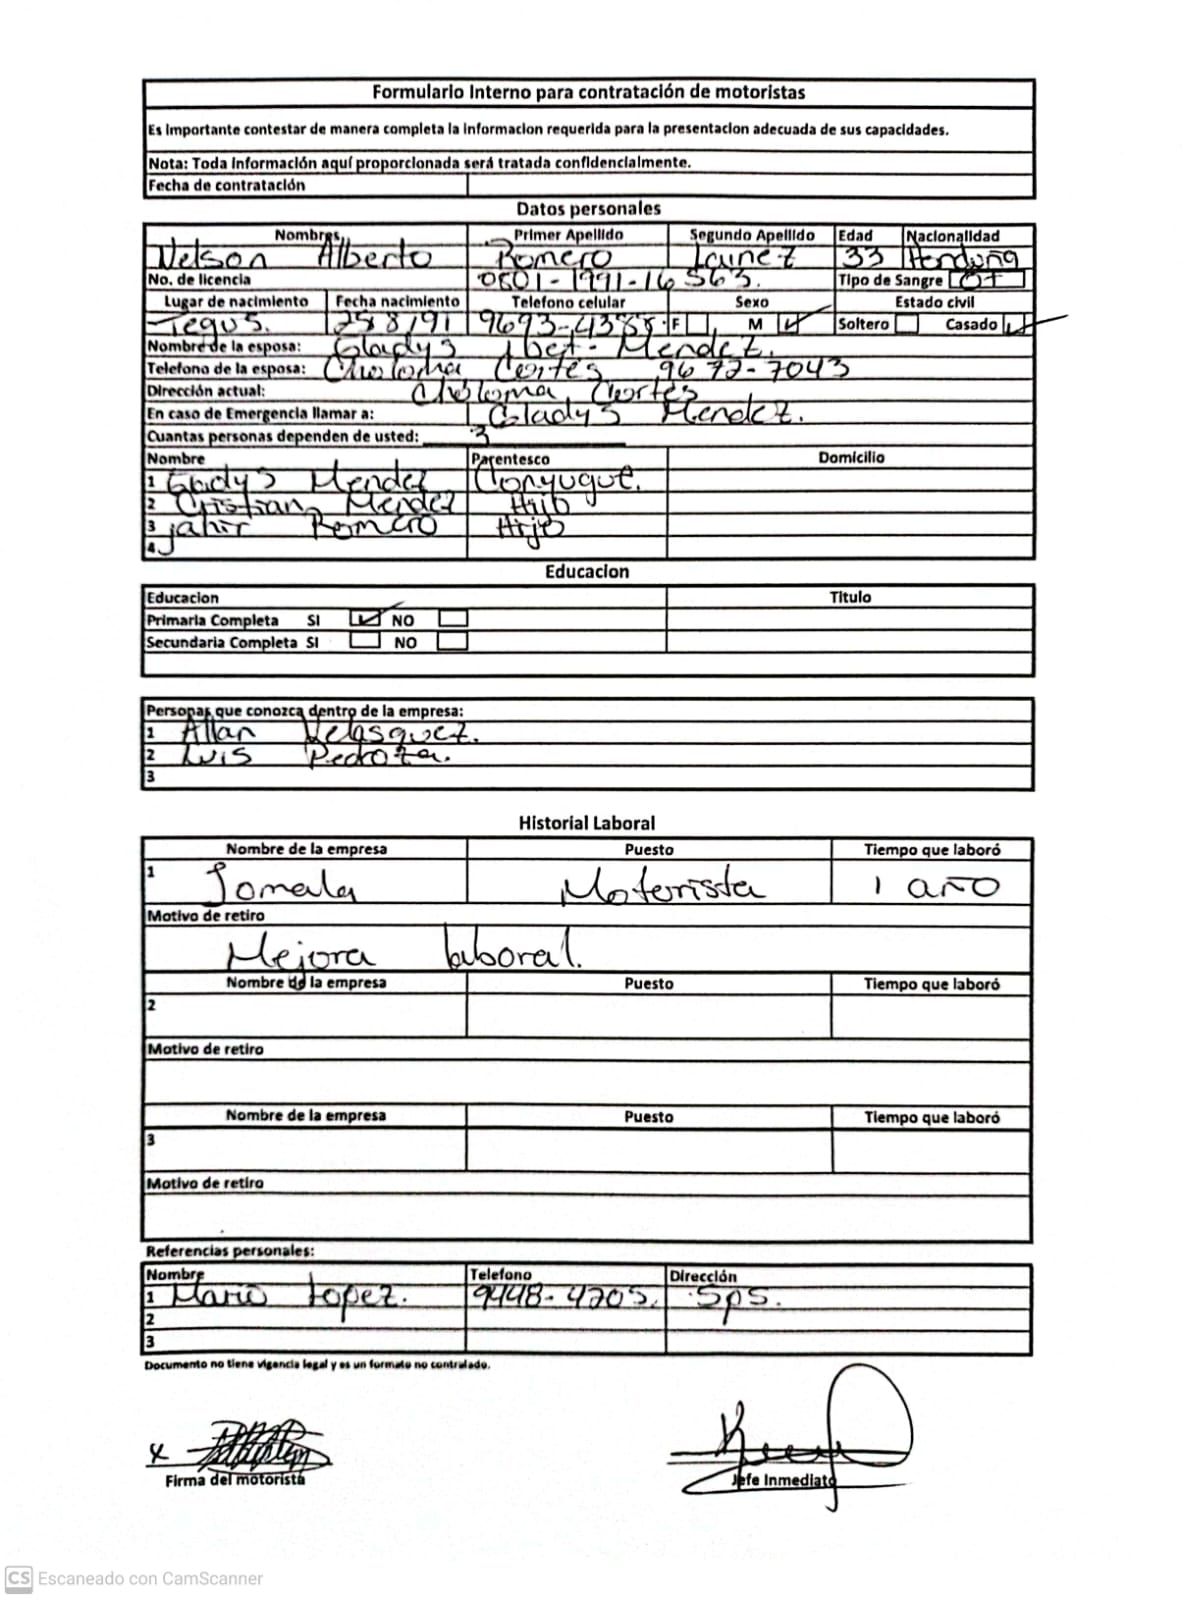 Formulario Interno para contratación de motoristas
Es Importante contestar de manera completa la informacion requerida para la presentacion adecuada de sus capacidades.
Nota: Toda información aquí proporcionada será tratada confidencialmente.
Fecha de contratación
Datos personales
Nombres Primer Apellido Segundo Apellido Edad Nacionalidad
Nelson Alberto Romero Lainez 33 Honduña
No. de licencia 0801-1991-16563. Tipo de Sangre O+
Lugar de nacimiento Fecha nacimiento Telefono celular Sexo Estado civil
Tegus. 25 8/91 9693-4388 F M Soltero Casado
Nombre de la esposa: Gladys Mendez.
Telefono de la esposa: Choloma Cortés 9672-7043
Dirección actual: Choloma Cortes
En caso de Emergencia llamar a: Gladys Mendez.
Cuantas personas dependen de usted: 3
Nombre Parentesco Domicilio
1 Gladys Mendez Conyugue.
2 Cristian Mendez Hijo
3 jahir Romero Hijo
4
Educacion
Educacion Titulo
Primaria Completa SI NO
Secundaria Completa SI NO
Personas que conozca dentro de la empresa:
1 Allan Velasquez.
2 Luis Pedroza.
3
Historial Laboral
Nombre de la empresa Puesto Tiempo que laboró
1 Jomala Motorista 1 año
Motivo de retiro
Mejora laboral.
Nombre de la empresa Puesto Tiempo que laboró
2
Motivo de retiro
Nombre de la empresa Puesto Tiempo que laboró
3
Motivo de retiro
Referencias personales:
Nombre Telefono Dirección
1 Mario Lopez. 9448-4205. Sps.
2
3
Documento no tiene vigencia legal y es un formato no controlado.
X
Firma del motorista Jefe Inmediato
CS Escaneado con CamScanner